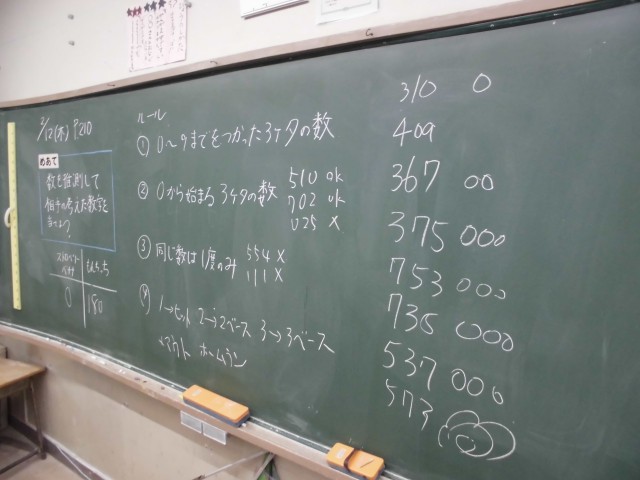 2/12(木) P210
めあて
数を推測して
相手の考えた数字を
当てよう
0 180
ルール
① 0〜9までをつかった3ケタの数
② 0から始まる 3ケタの数 510 ok
702 ok
025 ×
③ 同じ数は1度のみ 554 ×
111 ×
④ 1→ヒット 2→2ベース 3→3ベース
×アウト ホームラン
310 0
409
367 00
375 000
753 000
735 000
537 000
573